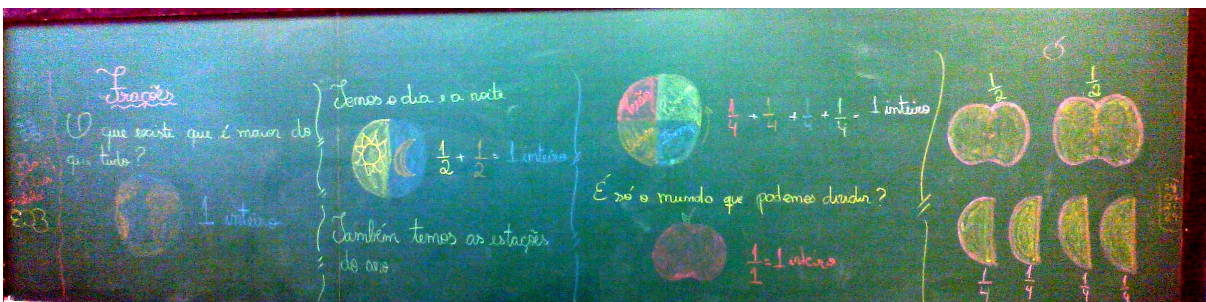 Frações
O que existe que é maior do
que tudo?
1 inteiro
Temos o dia e a noite
1/2 + 1/2 = 1 inteiro
Também temos as estações
do ano
1/4 + 1/4 + 1/4 + 1/4 = 1 inteiro
É só o mundo que podemos dividir?
1/1 = 1 inteiro
1/2 1/2
1/4 1/4 1/4 1/4